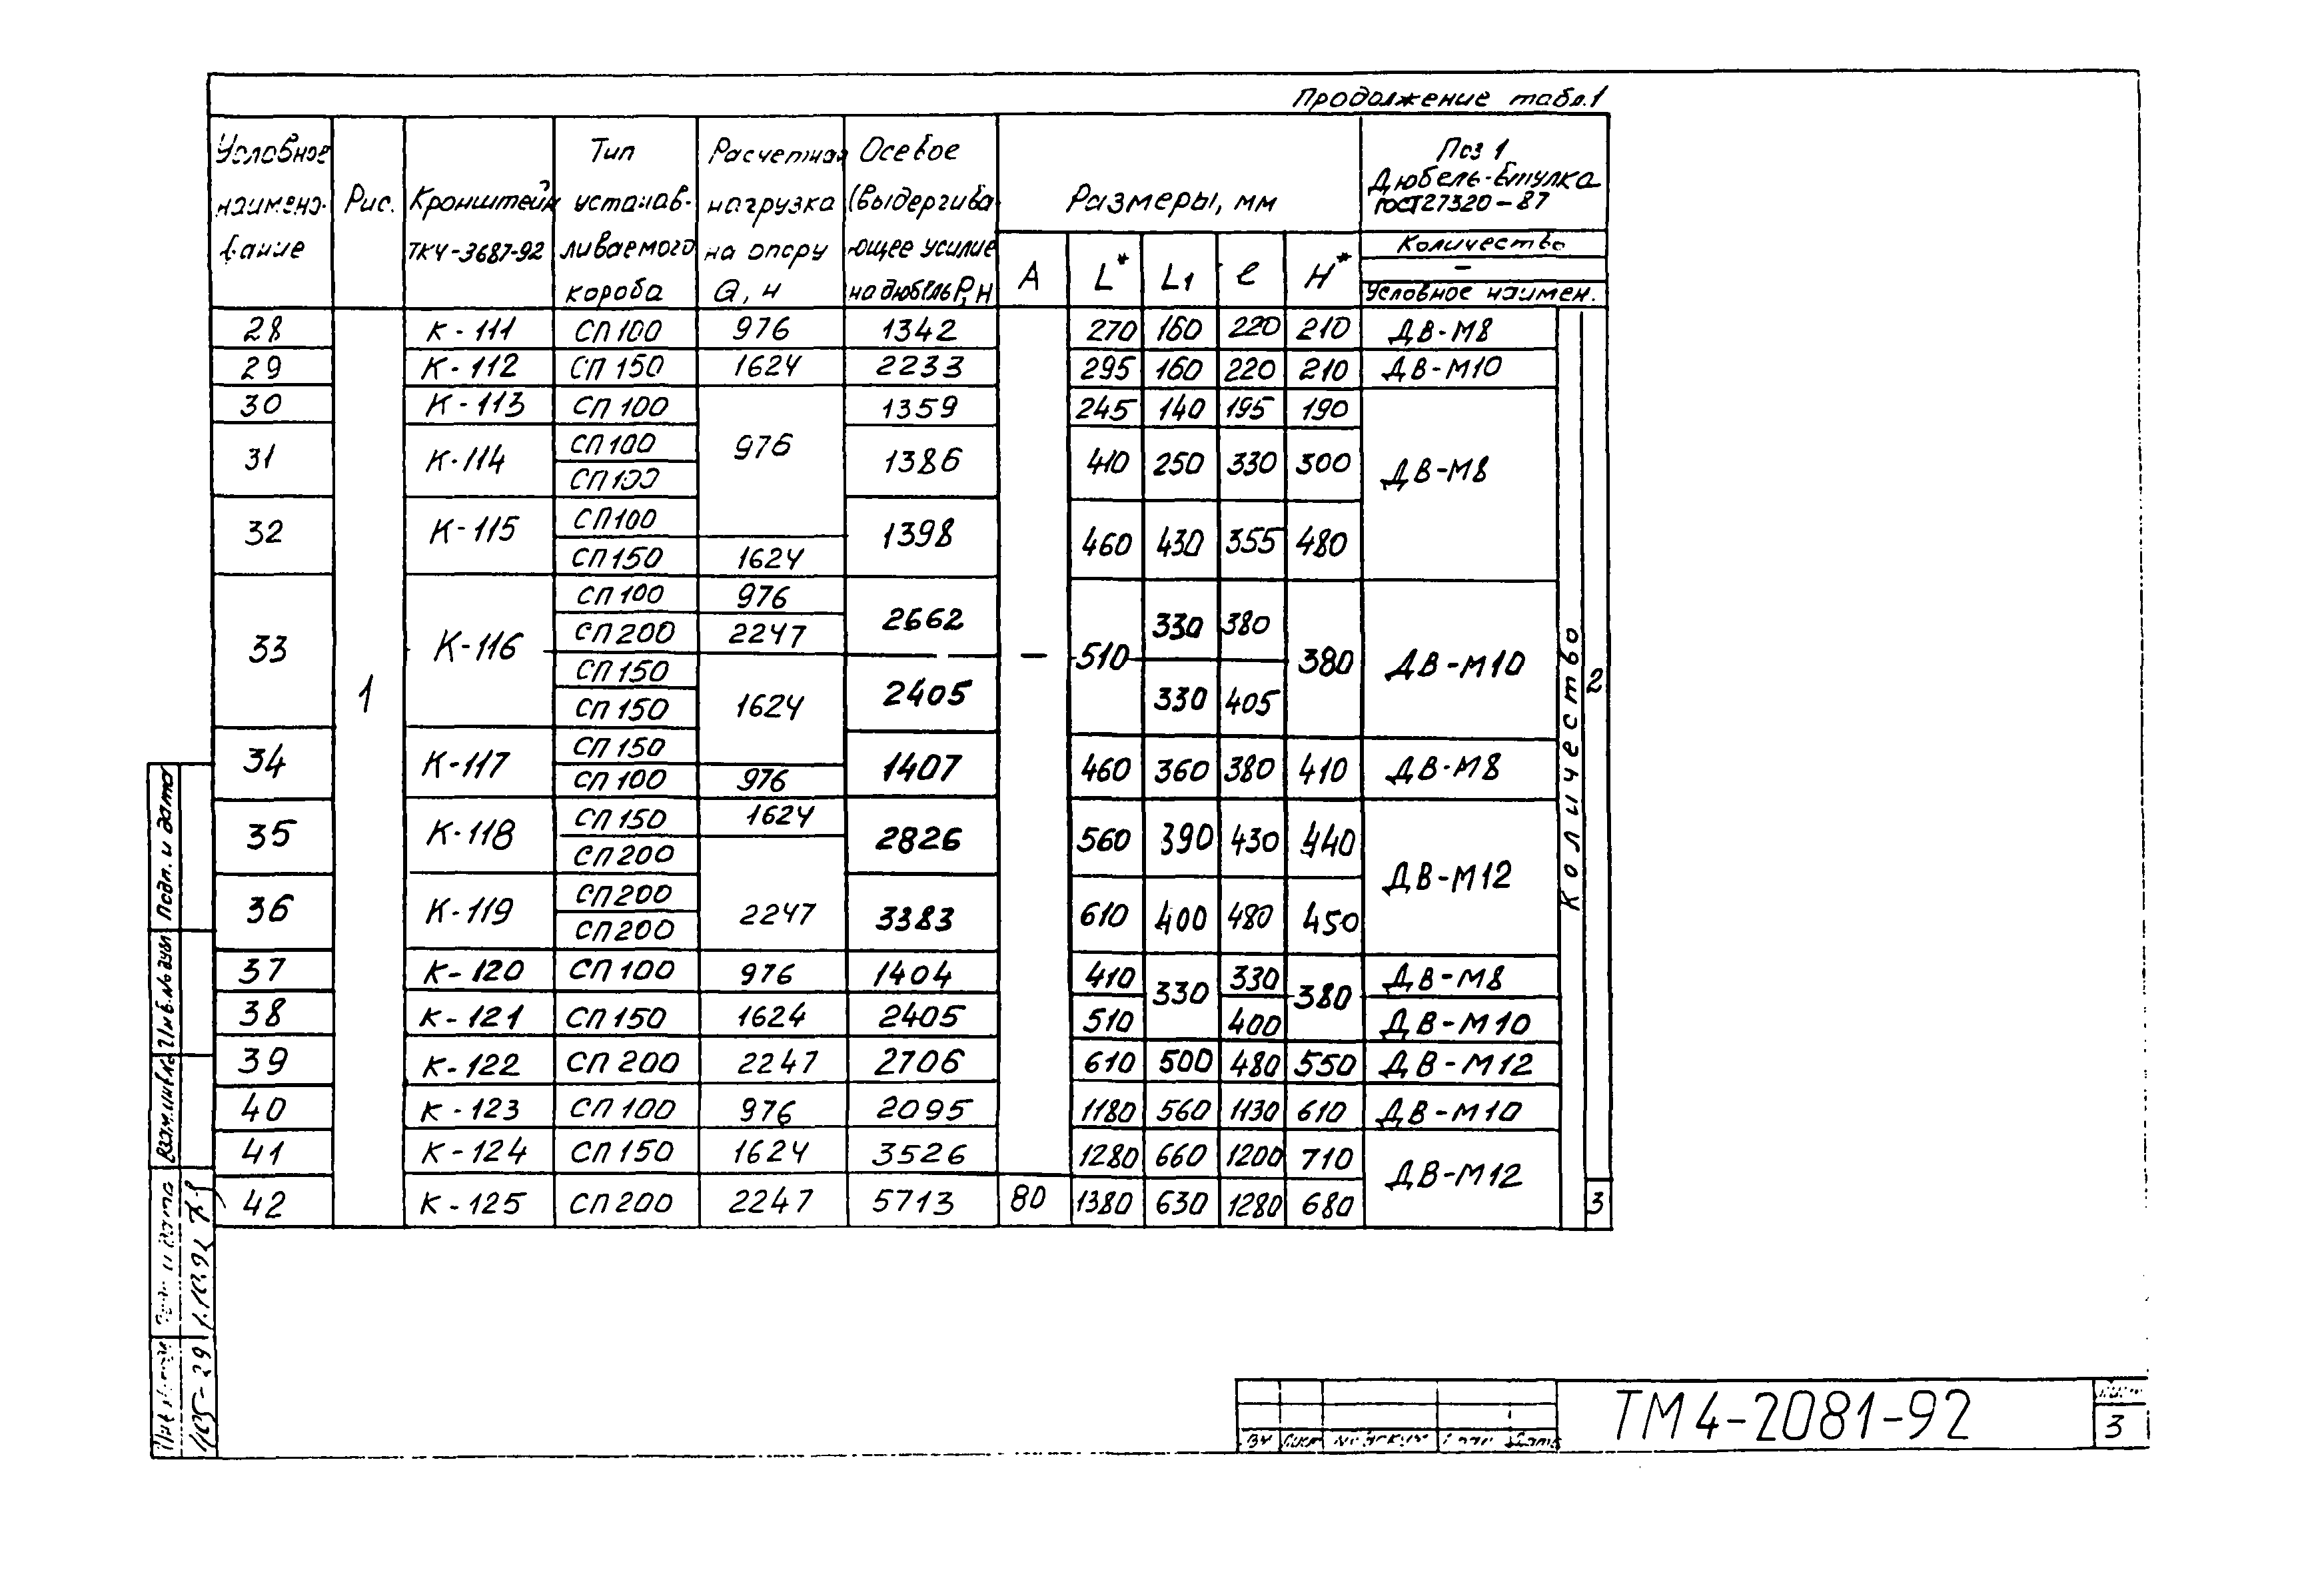 Продолжение табл.1
Условное наимено- вание | Рис. | Кронштейн ТК4-3687-92 | Тип устанав- ливаемого короба | Расчетная нагрузка на опору Q, н | Осевое (выдергива ющее усилие на дюбель P, н | Размеры, мм | Поз 1 Дюбель-втулка ГОСТ 27320-87
A | L* | L1 | ℓ | H* | Количество – Условное наимен.
28 | К-111 | СП100 | 976 | 1342 | 270 | 160 | 220 | 210 | ДВ-М8
29 | К-112 | СП150 | 1624 | 2233 | 295 | 160 | 220 | 210 | ДВ-М10
30 | К-113 | СП100 | 976 | 1359 | 245 | 140 | 195 | 190 | ДВ-М8
31 | К-114 | СП100 | 1386 | 410 | 250 | 330 | 300
СП100
32 | К-115 | СП100 | 1398 | 460 | 430 | 355 | 480
СП150 | 1624
33 | К-116 | СП100 | 976 | 2662 | 510 | 330 | 380 | 380 | ДВ-М10
СП200 | 2247
СП150 | 1624 | 2405 | 330 | 405
СП150
1 | – | Количество | 2
34 | К-117 | СП150 | 1407 | 460 | 360 | 380 | 410 | ДВ-М8
СП100 | 976
35 | К-118 | СП150 | 1624 | 2826 | 560 | 390 | 430 | 440 | ДВ-М12
СП200
36 | К-119 | СП200 | 2247 | 3383 | 610 | 400 | 480 | 450
СП200
37 | К-120 | СП100 | 976 | 1404 | 410 | 330 | 330 | 380 | ДВ-М8
38 | К-121 | СП150 | 1624 | 2405 | 510 | 400 | ДВ-М10
39 | К-122 | СП200 | 2247 | 2706 | 610 | 500 | 480 | 550 | ДВ-М12
40 | К-123 | СП100 | 976 | 2095 | 1180 | 560 | 1130 | 610 | ДВ-М10
41 | К-124 | СП150 | 1624 | 3526 | 1280 | 660 | 1200 | 710 | ДВ-М12
42 | К-125 | СП200 | 2247 | 5713 | 80 | 1380 | 630 | 1280 | 680 | 3
Подп. и дата
Инв.№ дубл
Взам.инв.№
ТМ4-2081-92
Лист
3